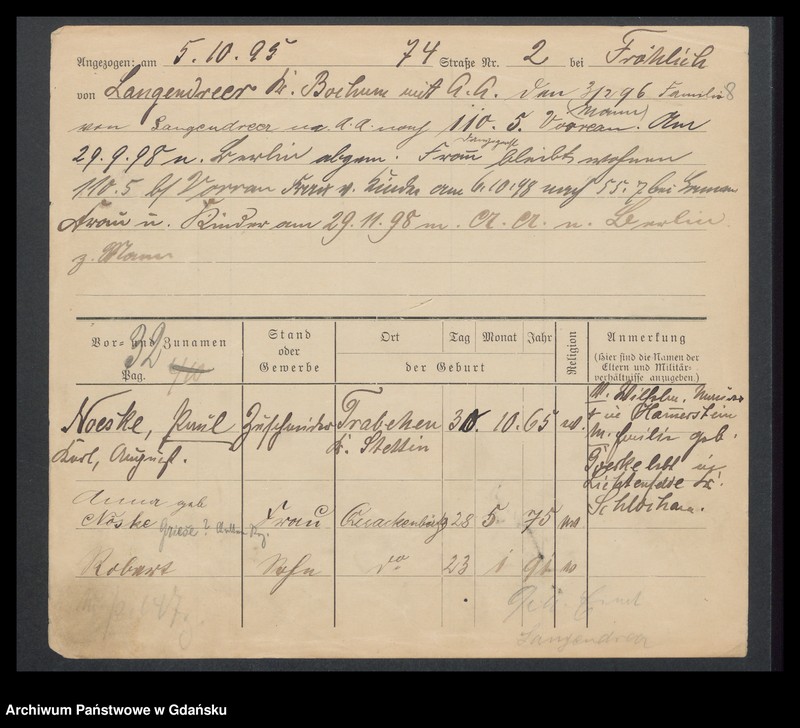 Angezogen: am 5.10.95 74 Straße Nr. 2 bei Fröhlich
von Langendreer Kr. Bochum mit A.A. den 3/2 96 Familie 8
von Langendreer m. A.A. nach 110. 5. Vorran. (Mann) Am
29.9.98 n. Berlin abgem. Frau bleibt wohnen
110.5 bei Vorran Frau u. Kinder am 6.10.98 nach 55.7 bei
Frau u. Kinder am 29.11.98 m. A.A. n. Berlin
z. Mann
Vor- und Zunamen
32
Pag.
Stand oder Gewerbe
Ort Tag Monat Jahr
der Geburt
Religion
Anmerkung
(Hier sind die Namen der Eltern und Militärverhältnisse anzugeben.)
Noeske, Paul Zuschneider Trabehen 30. 10. 65 ev.
Karl, August. Kr. Stettin
V. Wilhelm, Maurer
† in Hamerstein
M. Emilie geb.
lebt in
Lichtenfelde Kr.
Schlochau.
Anna geb
Noske Frau Quackenburg 28 5 75 ev
Griese?
Robert Sohn do 23 1 91 ev
p. 147
Langendreer
Archiwum Państwowe w Gdańsku